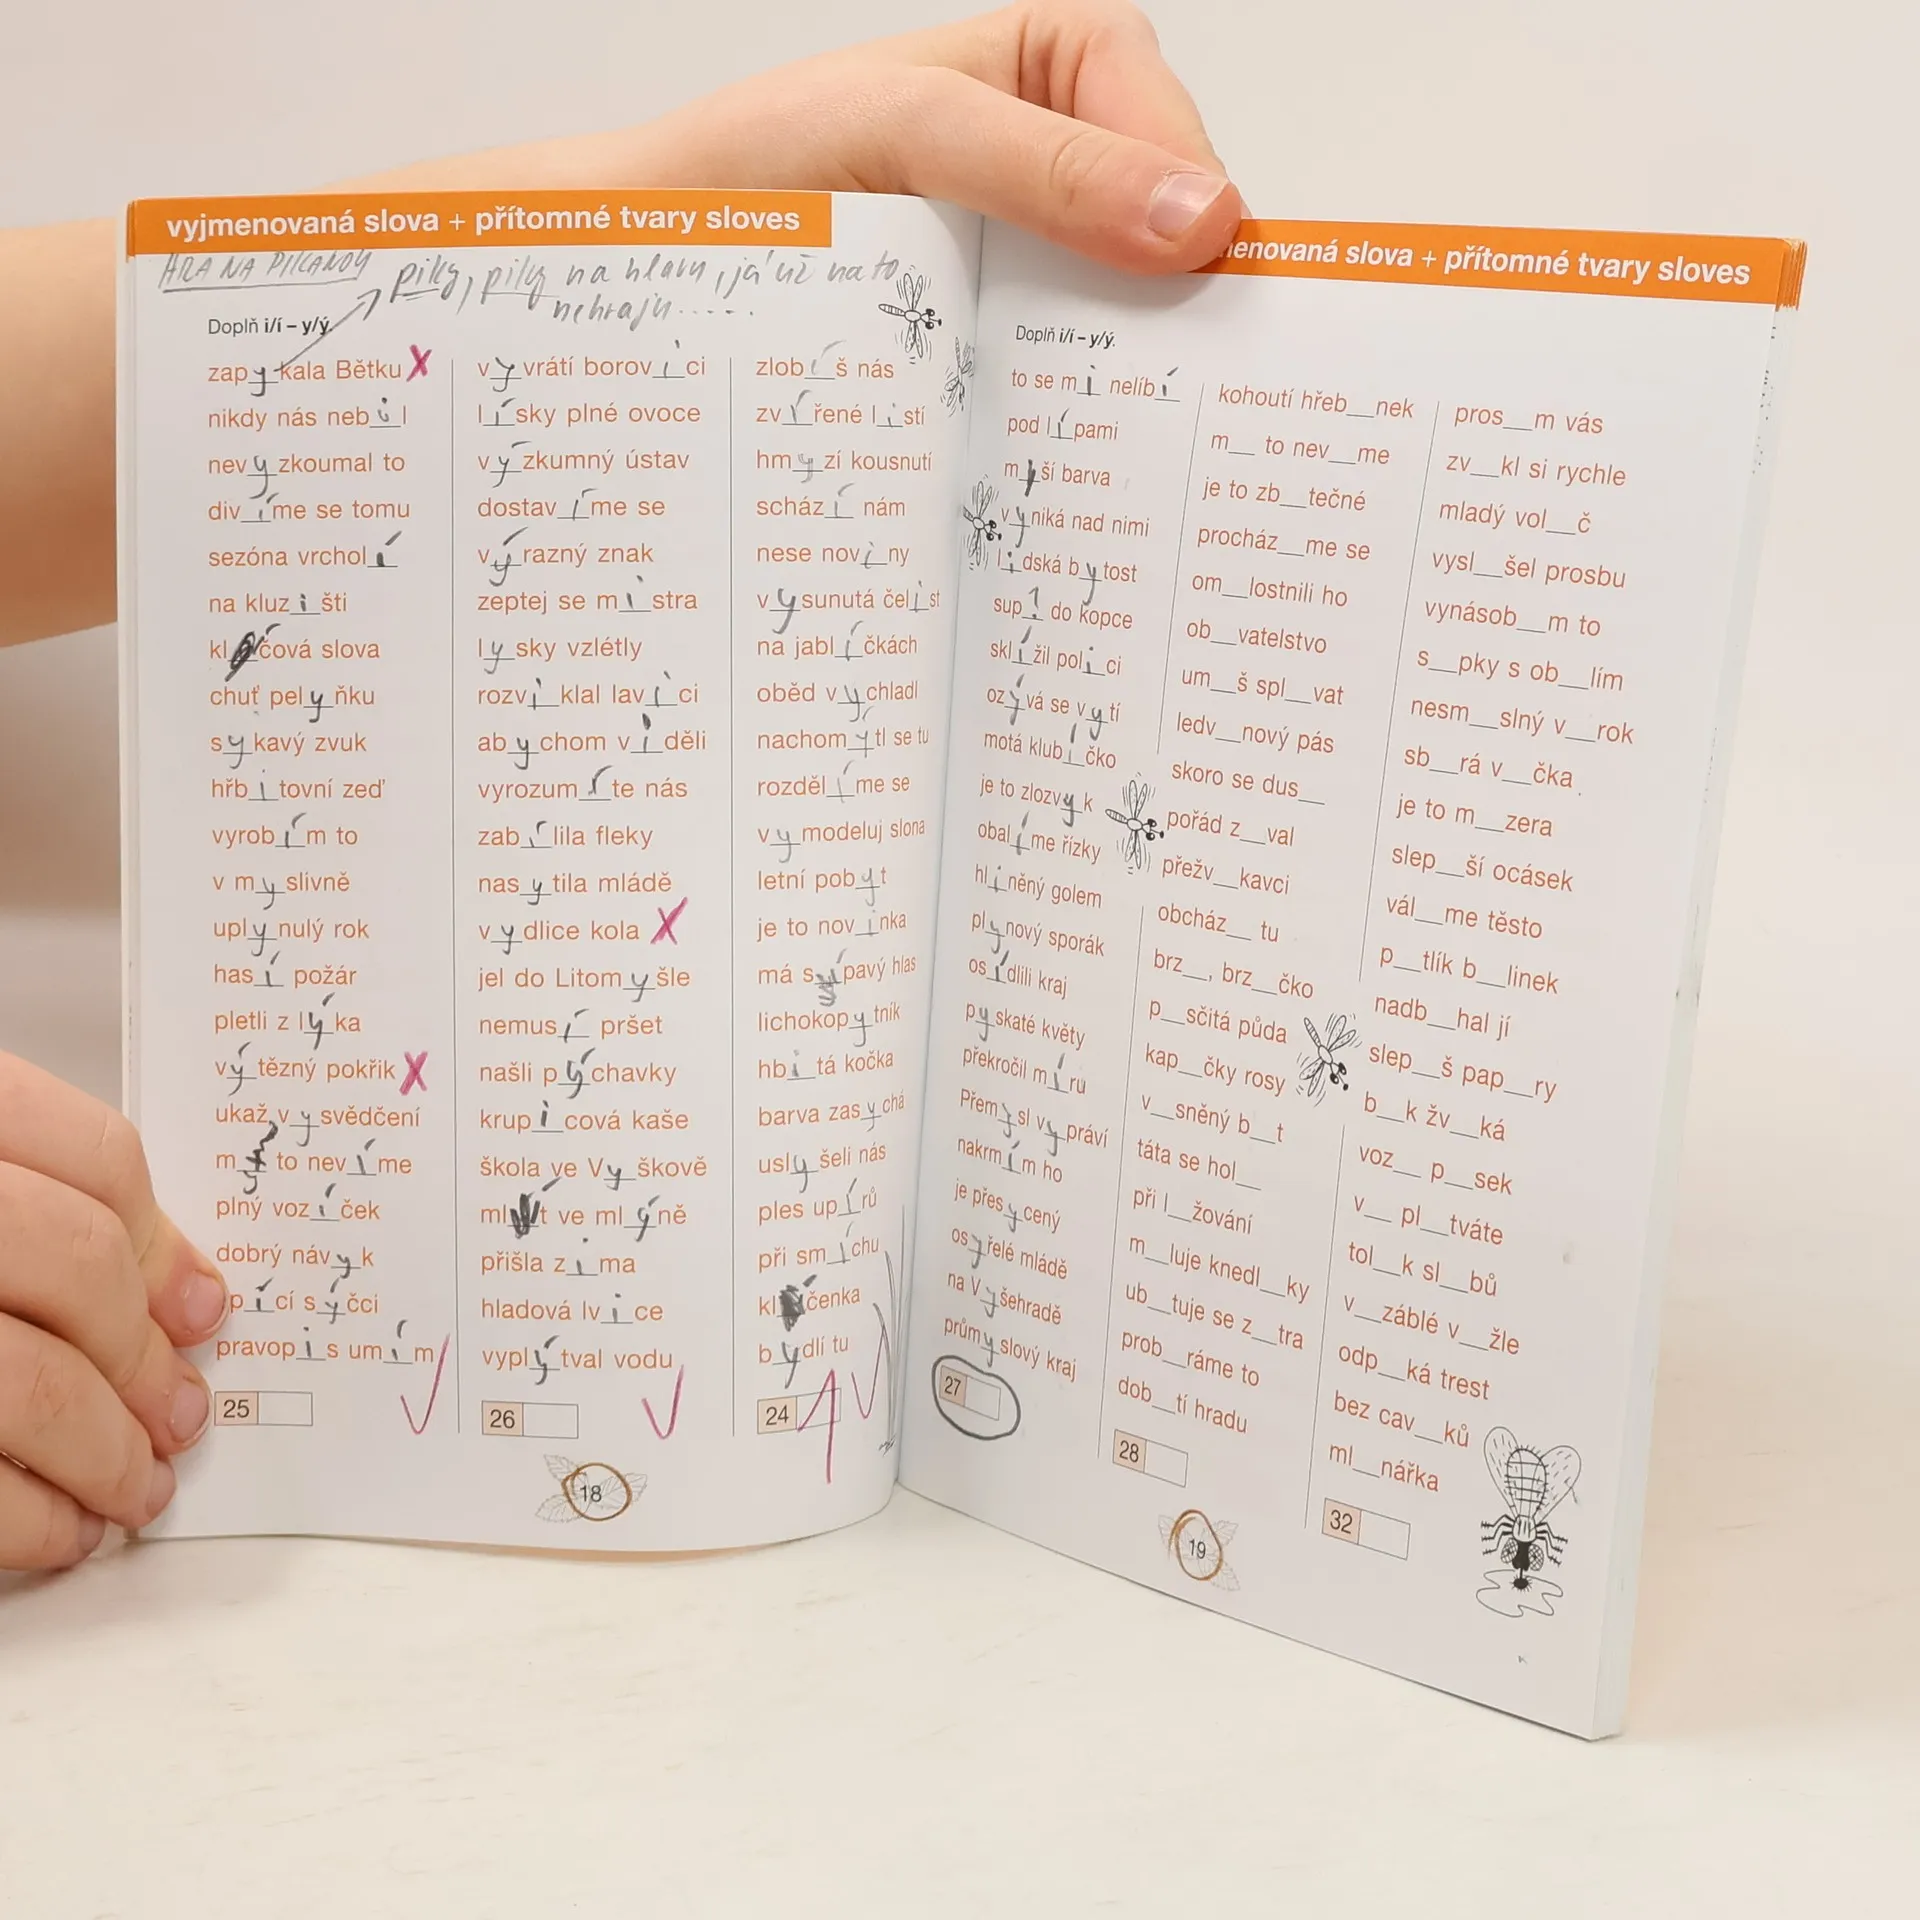 vyjmenovaná slova + přítomné tvary sloves
HRA NA PIKANDU
piky, piky na hlavu, já už na to
nehraju.....
Doplň i/í – y/ý.
zapykala Bětku X
nikdy nás nebil
nevyzkoumal to
divíme se tomu
sezóna vrcholí
na kluzišti
klíčová slova
chuť pelyňku
sykavý zvuk
hřbitovní zeď
vyrobím to
v myslivně
uplynulý rok
hasí požár
pletli z lýka
výtězný pokřik X
ukaž vysvědčení
my to nevíme
plný vozíček
dobrý návyk
pící sýčci
pravopis umím
25
vyvrátí borovici
lísky plné ovoce
výzkumný ústav
dostavíme se
výrazný znak
zeptej se mistra
lysky vzlétly
rozviklal lavici
abychom viděli
vyrozumíte nás
zabílila fleky
nasytila mládě
vydlice kola X
jel do Litomyšle
nemusí pršet
našli pýchavky
krupicová kaše
škola ve Vyškově
mlít ve mlýně
přišla zima
hladová lvice
vyplýtval vodu
26
zlobíš nás
zvířené listí
hmyzí kousnutí
schází nám
nese noviny
vysunutá čelist
na jablíčkách
oběd vychladl
nachomýtl se tu
rozdělíme se
vymodeluj slona
letní pobyt
je to novinka
má sípavý hlas
lichokopytník
hbitá kočka
barva zasychá
uslyšeli nás
ples upírů
při smíchu
klíčenka
bydlí tu
24
18
menovaná slova + přítomné tvary sloves
Doplň i/í – y/ý.
to se mi nelíbí
pod lípami
myší barva
vyniká nad nimi
lidská bytost
supí do kopce
sklížil polici
ozývá se vytí
motá klubíčko
je to zlozvyk
obalíme řízky
hliněný golem
plynový sporák
osídlili kraj
pyskaté květy
překročil míru
Přemysl vypráví
nakrmím ho
je přesycený
osyřelé mládě
na Vyšehradě
průmyslový kraj
27
kohoutí hřeb__nek
m__ to nev__me
je to zb__tečné
procház__me se
om__lostnili ho
ob__vatelstvo
um__š spl__vat
ledv__nový pás
skoro se dus__
pořád z__val
přežv__kavci
obcház__ tu
brz__, brz__čko
p__sčitá půda
kap__čky rosy
v__sněný b__t
táta se hol__
při l__žování
m__luje knedl__ky
ub__tuje se z__tra
prob__ráme to
dob__tí hradu
28
pros__m vás
zv__kl si rychle
mladý vol__č
vysl__šel prosbu
vynásob__m to
s__pky s ob__lím
nesm__slný v__rok
sb__rá v__čka
je to m__zera
slep__ší ocásek
vál__me těsto
p__tlík b__linek
nadb__hal jí
slep__š pap__ry
b__k žv__ká
voz__ p__sek
v__ pl__tváte
tol__k sl__bů
v__záblé v__žle
odp__ká trest
bez cav__ků
ml__nářka
32
19